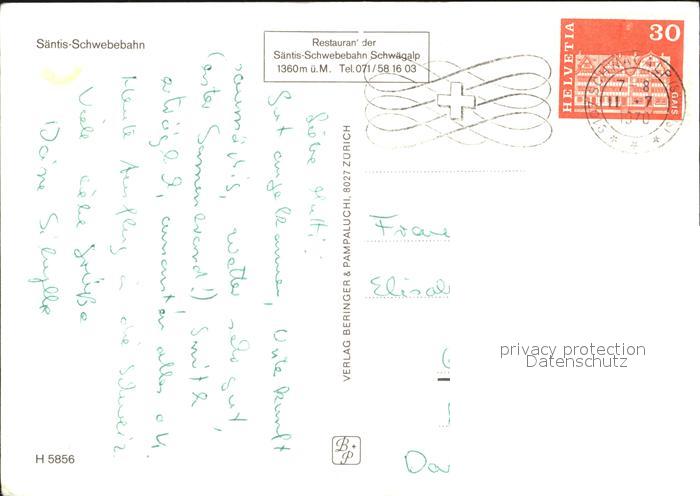 Säntis-Schwebebahn
Restaurant der
Säntis-Schwebebahn Schwägalp
1360m ü.M. Tel. 071/58 16 03
HELVETIA
30
GAIS
SCHWÄGALP
Liebe Mutti!
Gut angekommen, Unterkunft
saumäßig, Wetter sehr gut,
(erster Sonnenbrand!)
ansonsten alles o.k.
Heute Ausflug in die Schweiz.
Viele liebe Grüße
Deine Sibylle
VERLAG BERINGER & PAMPALUCHI, 8027 ZÜRICH
Frau
Elisab
B+P
H 5856
privacy protection
Datenschutz